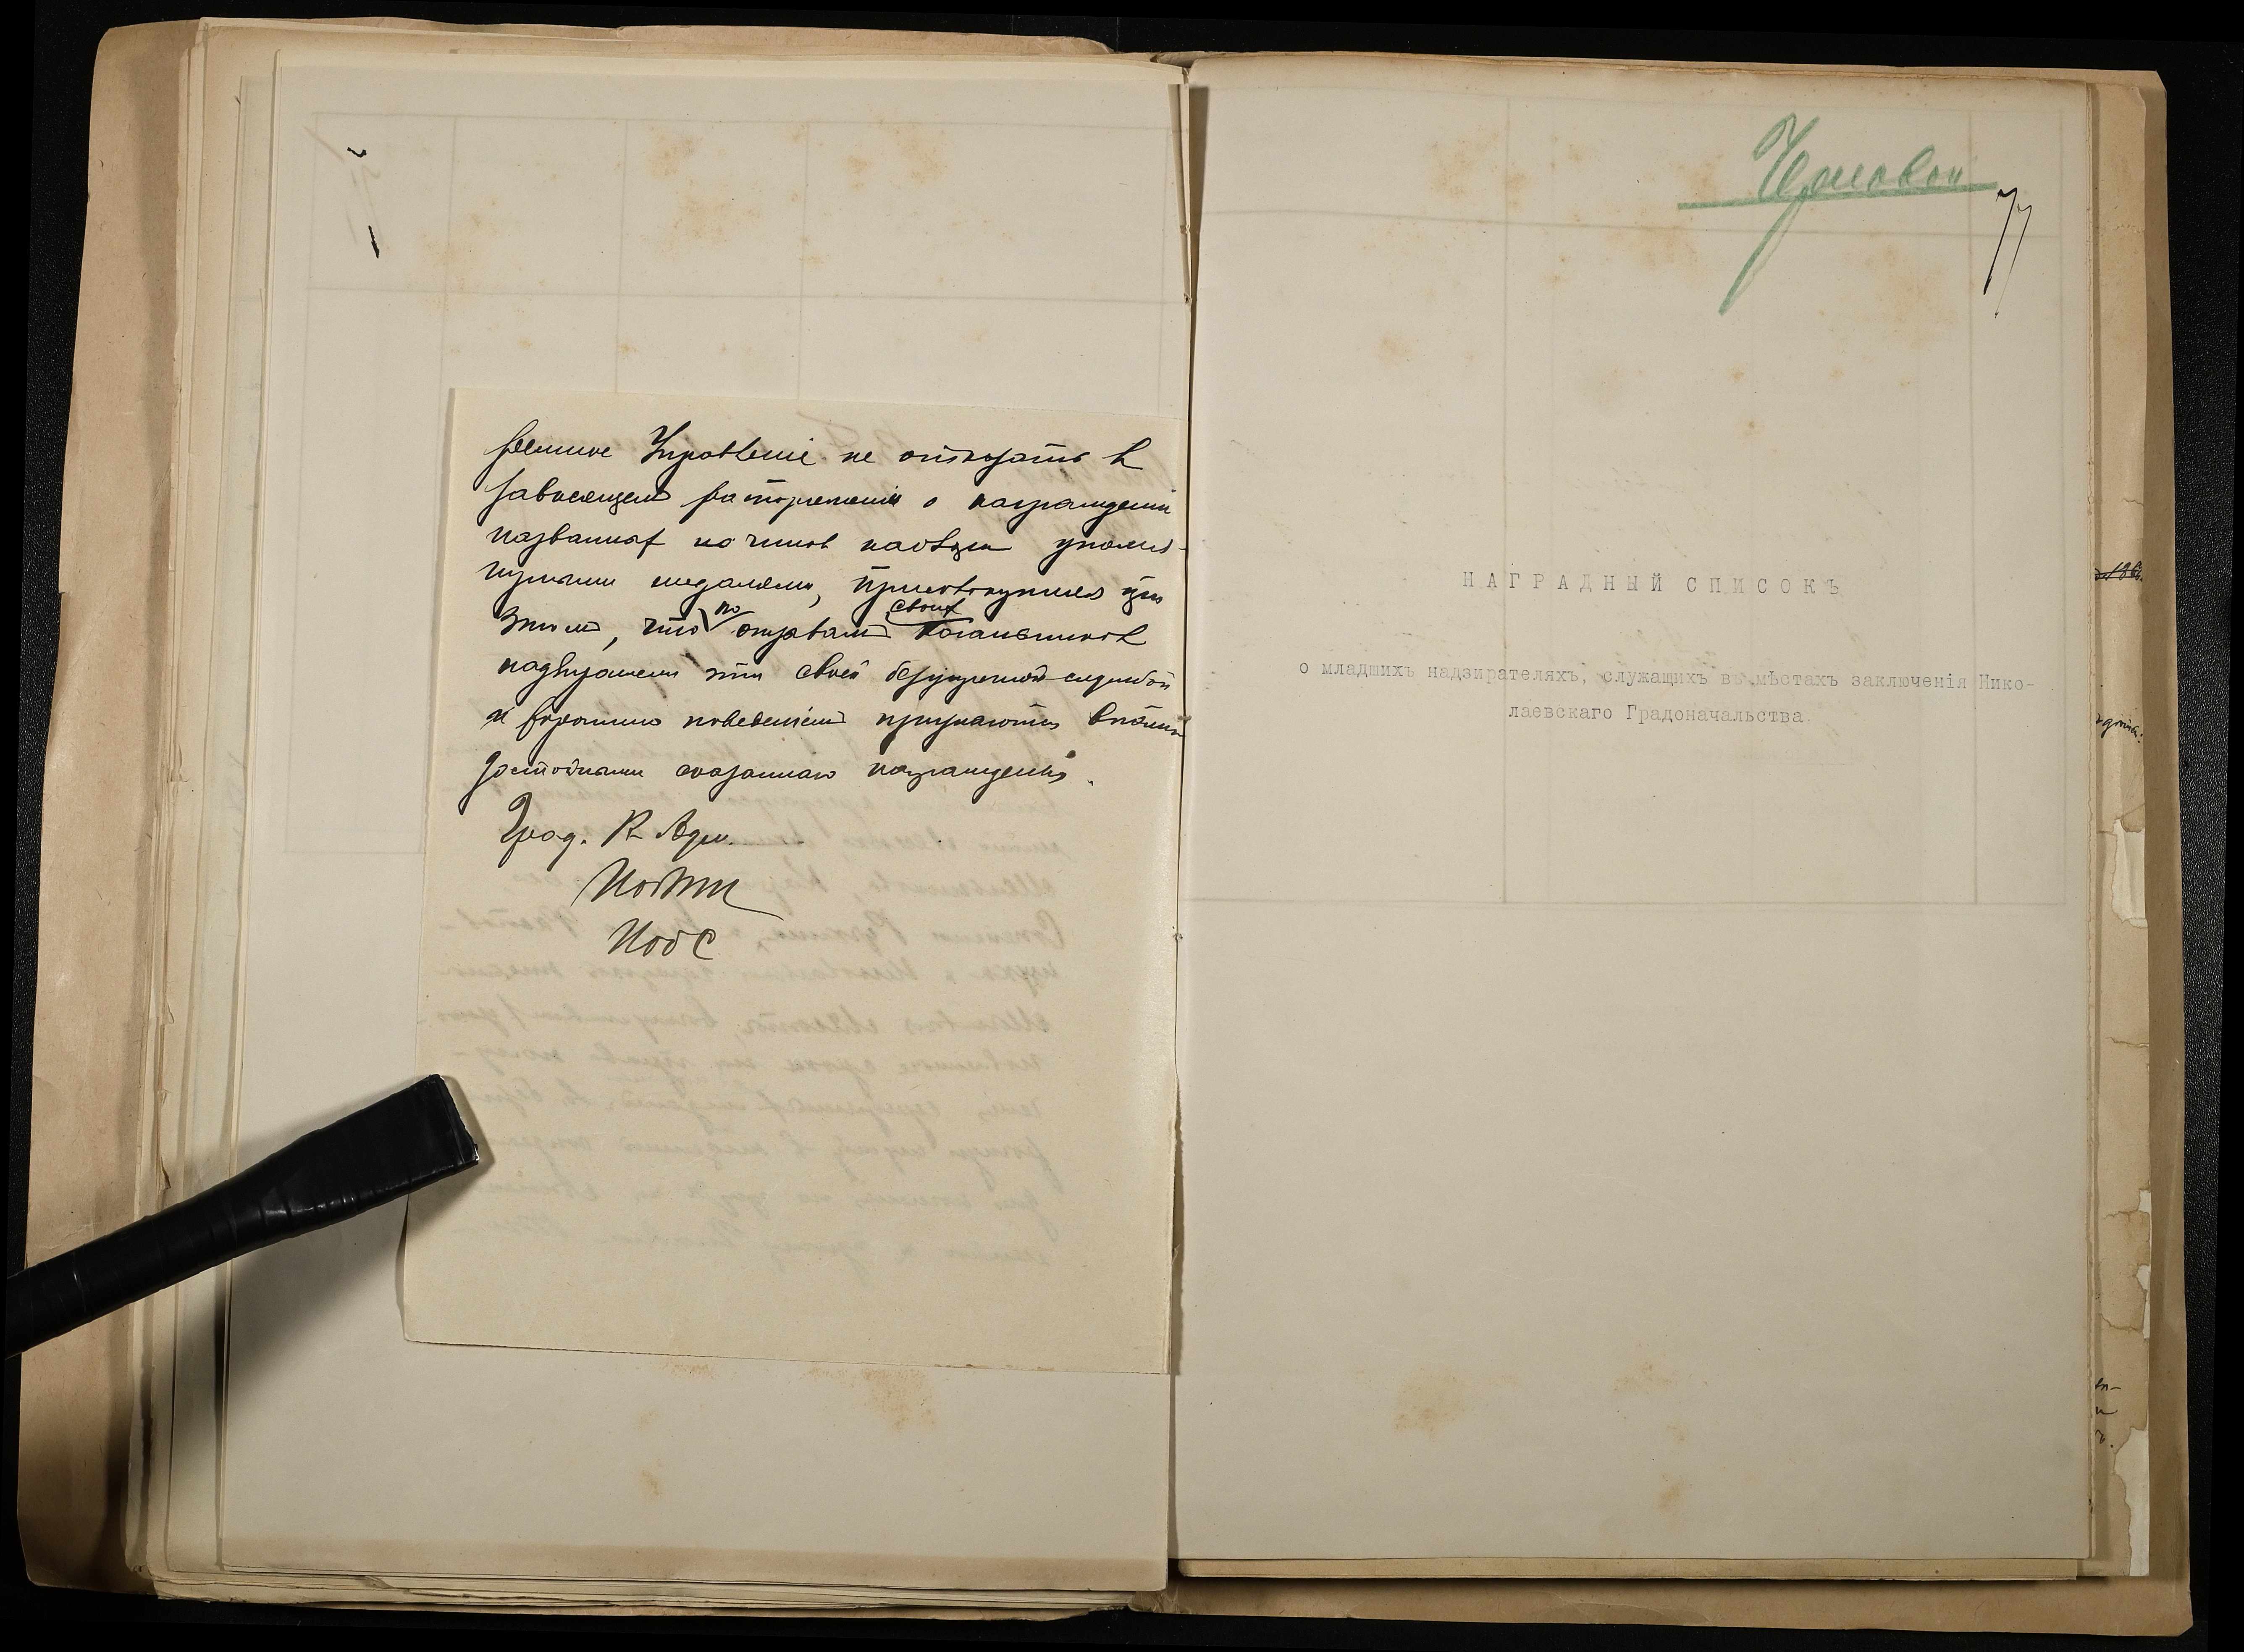 Управленіе не отказать в
зависящем распоряженіи о награжденіи
названных чинов надзора упомя-
нутыми медалями, присовокупляя при
этом, что по отзывам своих начальников
надзиратели эти своей безупречной службой
и хорошим поведеніем признаются вполне
достойными сказаннаго награжденія.
Град. К. Адм.
Черновой
77
НАГРАДНЫЙ СПИСОКЪ
о младшихъ надзирателяхъ, служащихъ въ мѣстахъ заключенія Нико-
лаевскаго Градоначальства.